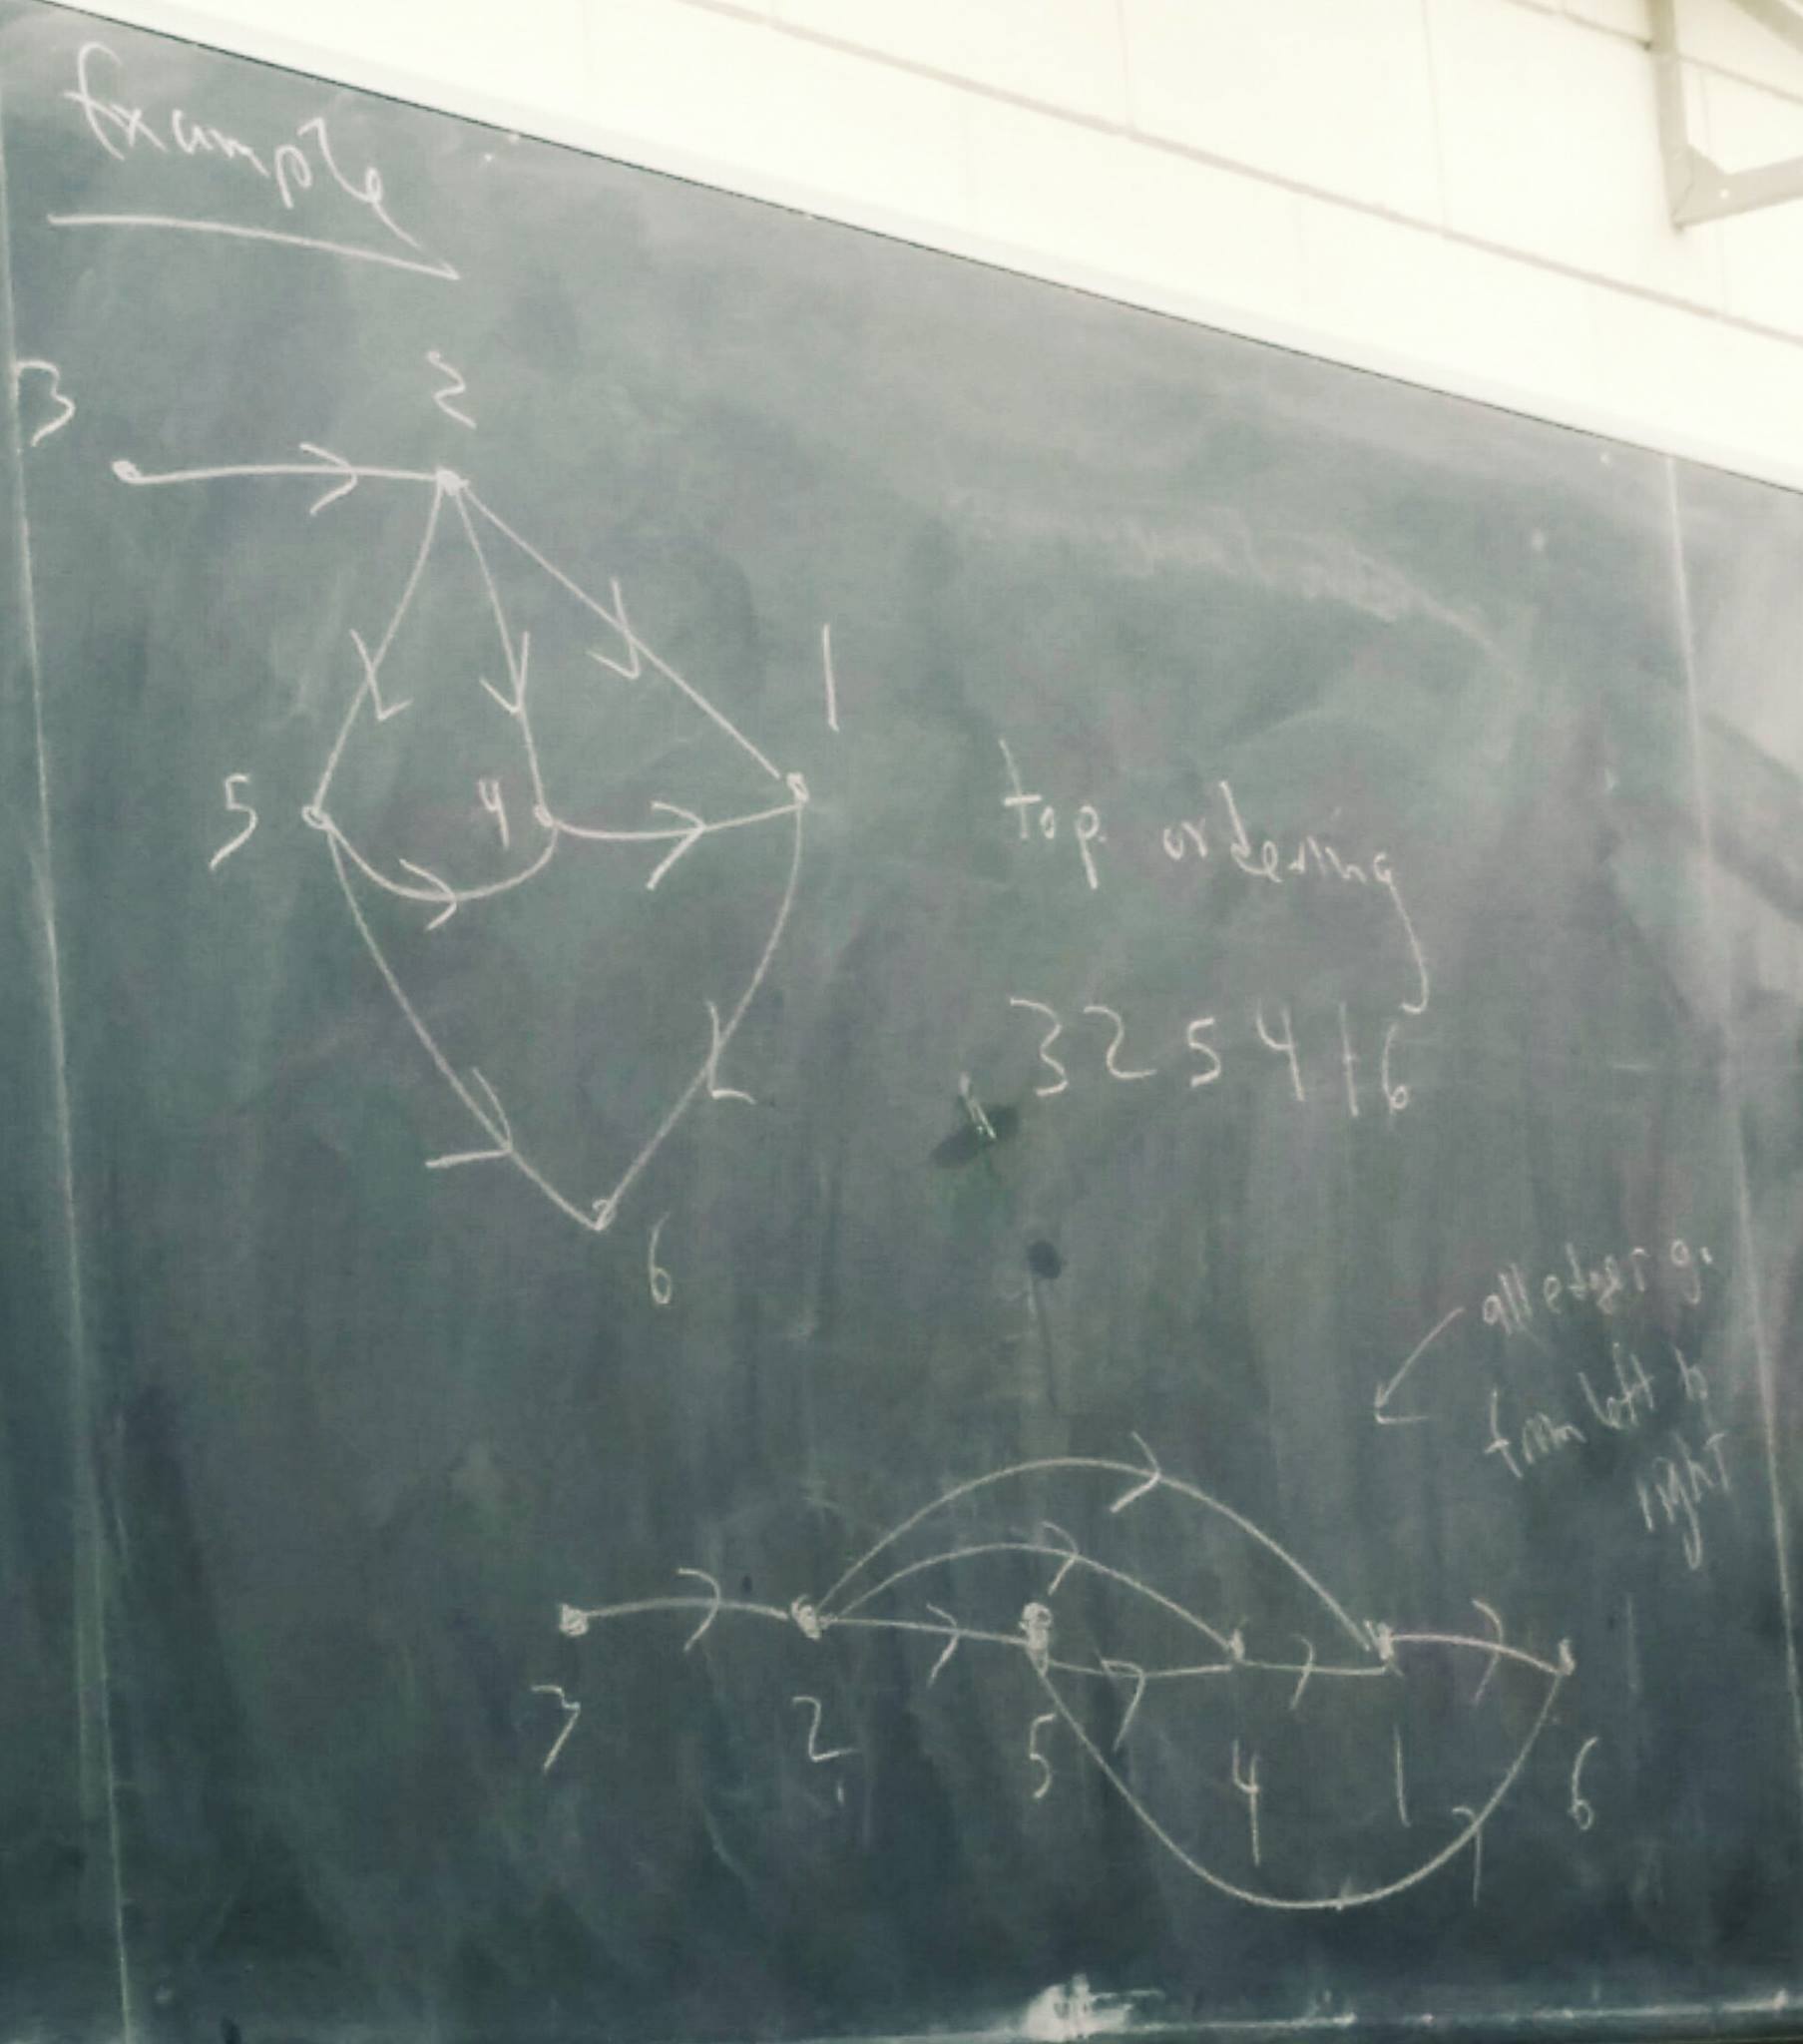 Example
3 2
1
5 4
top. ordering
3 2 5 4 1 6
6
all edges go
from left to
right
3 2 5 4 1 6